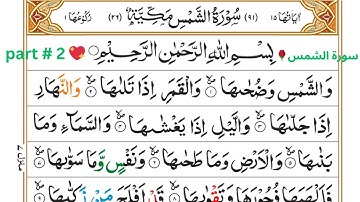 اٰيَاتُهَا ١٥ (٩١) سُوْرَةُ الشَّمْسِ مَكِّيَّةٌ (٢٦) رُكُوْعُهَا ١
part # 2
بِسْمِ اللّٰهِ الرَّحْمٰنِ الرَّحِيْمِ
سورة الشمس
وَالشَّمْسِ وَضُحٰىهَا ۝١ وَالْقَمَرِ اِذَا تَلٰىهَا ۝٢ وَالنَّهَارِ
اِذَا جَلّٰىهَا ۝٣ وَالَّيْلِ اِذَا يَغْشٰىهَا ۝٤ وَالسَّمَآءِ وَمَا
بَنٰىهَا ۝٥ وَالْاَرْضِ وَمَا طَحٰىهَا ۝٦ وَنَفْسٍ وَّمَا سَوّٰىهَا ۝٧
فَاَلْهَمَهَا فُجُوْرَهَا وَتَقْوٰىهَا ۝٨ قَدْ اَفْلَحَ مَنْ زَكّٰىهَا ۝٩